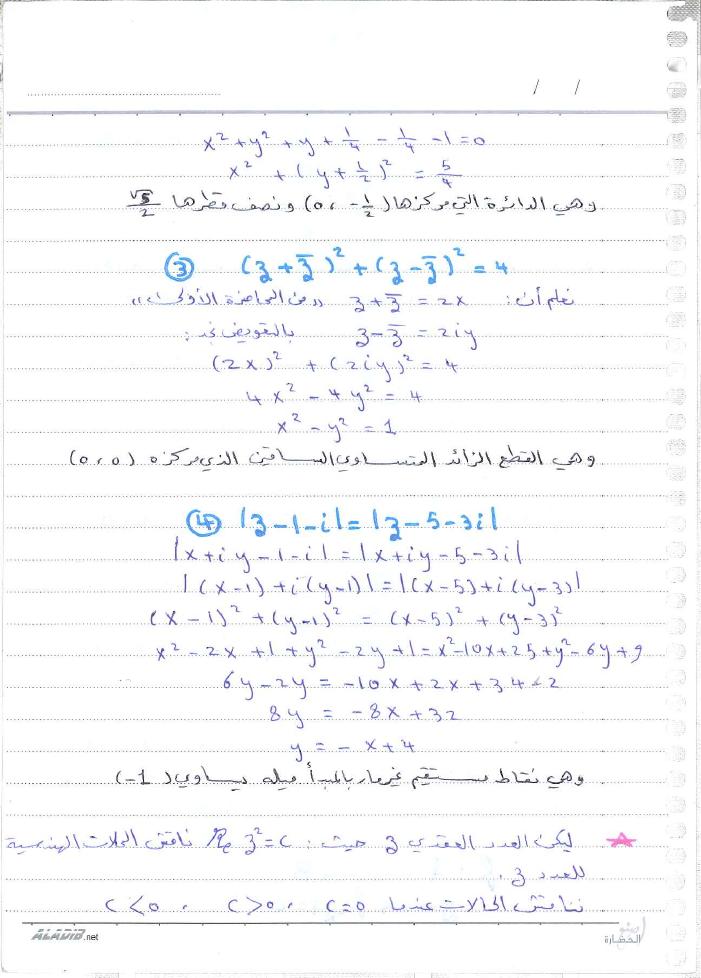 / /
x² + y² + y + 1/4 - 1/4 - 1 = 0
x² + (y + 1/2)² = 5/4
وهي الدائرة التي مركزها (0، -1/2) ونصف قطرها √5/2
③ (z + z̄)² + (z - z̄)² = 4
نعلم أن: z + z̄ = 2x «من المحاضرة الأولى»
z - z̄ = 2iy بالتعويض نجد:
(2x)² + (2iy)² = 4
4x² - 4y² = 4
x² - y² = 1
وهي القطع الزائد المتساوي الساقين الذي مركزه (0،0)
④ |z - 1 - i| = |z - 5 - 3i|
|x + iy - 1 - i| = |x + iy - 5 - 3i|
|(x-1) + i(y-1)| = |(x-5) + i(y-3)|
(x - 1)² + (y-1)² = (x-5)² + (y-3)²
x² - 2x + 1 + y² - 2y + 1 = x² - 10x + 25 + y² - 6y + 9
6y - 2y = -10x + 2x + 34 - 2
8y = -8x + 32
y = -x + 4
وهي نقاط مستقيم غير مار بالمبدأ ميله يساوي (-1)
ليكن العدد العقدي z حيث: Re z² = c ناقش الحلات الهندسية
للعدد z.
نناقش الحالات عندما c=0 ، c>0 ، c<0
ALADIB.net
الحضارة